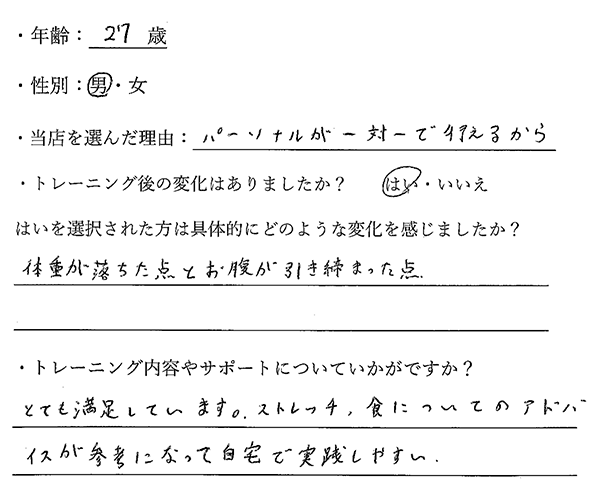 ・年齢：27 歳
・性別：男・女
・当店を選んだ理由：パーソナルが一対一で行えるから
・トレーニング後の変化はありましたか？　はい・いいえ
はいを選択された方は具体的にどのような変化を感じましたか？
体重が落ちた点とお腹が引き締まった点.
・トレーニング内容やサポートについていかがですか？
とても満足しています。ストレッチ,食についてのアドバ
イスが参考になって自宅で実践しやすい.